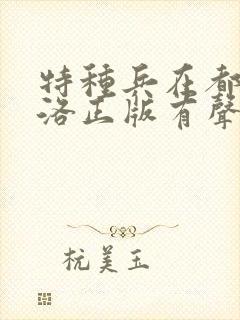 特種兵在都
洛正版有聲
杭美玉